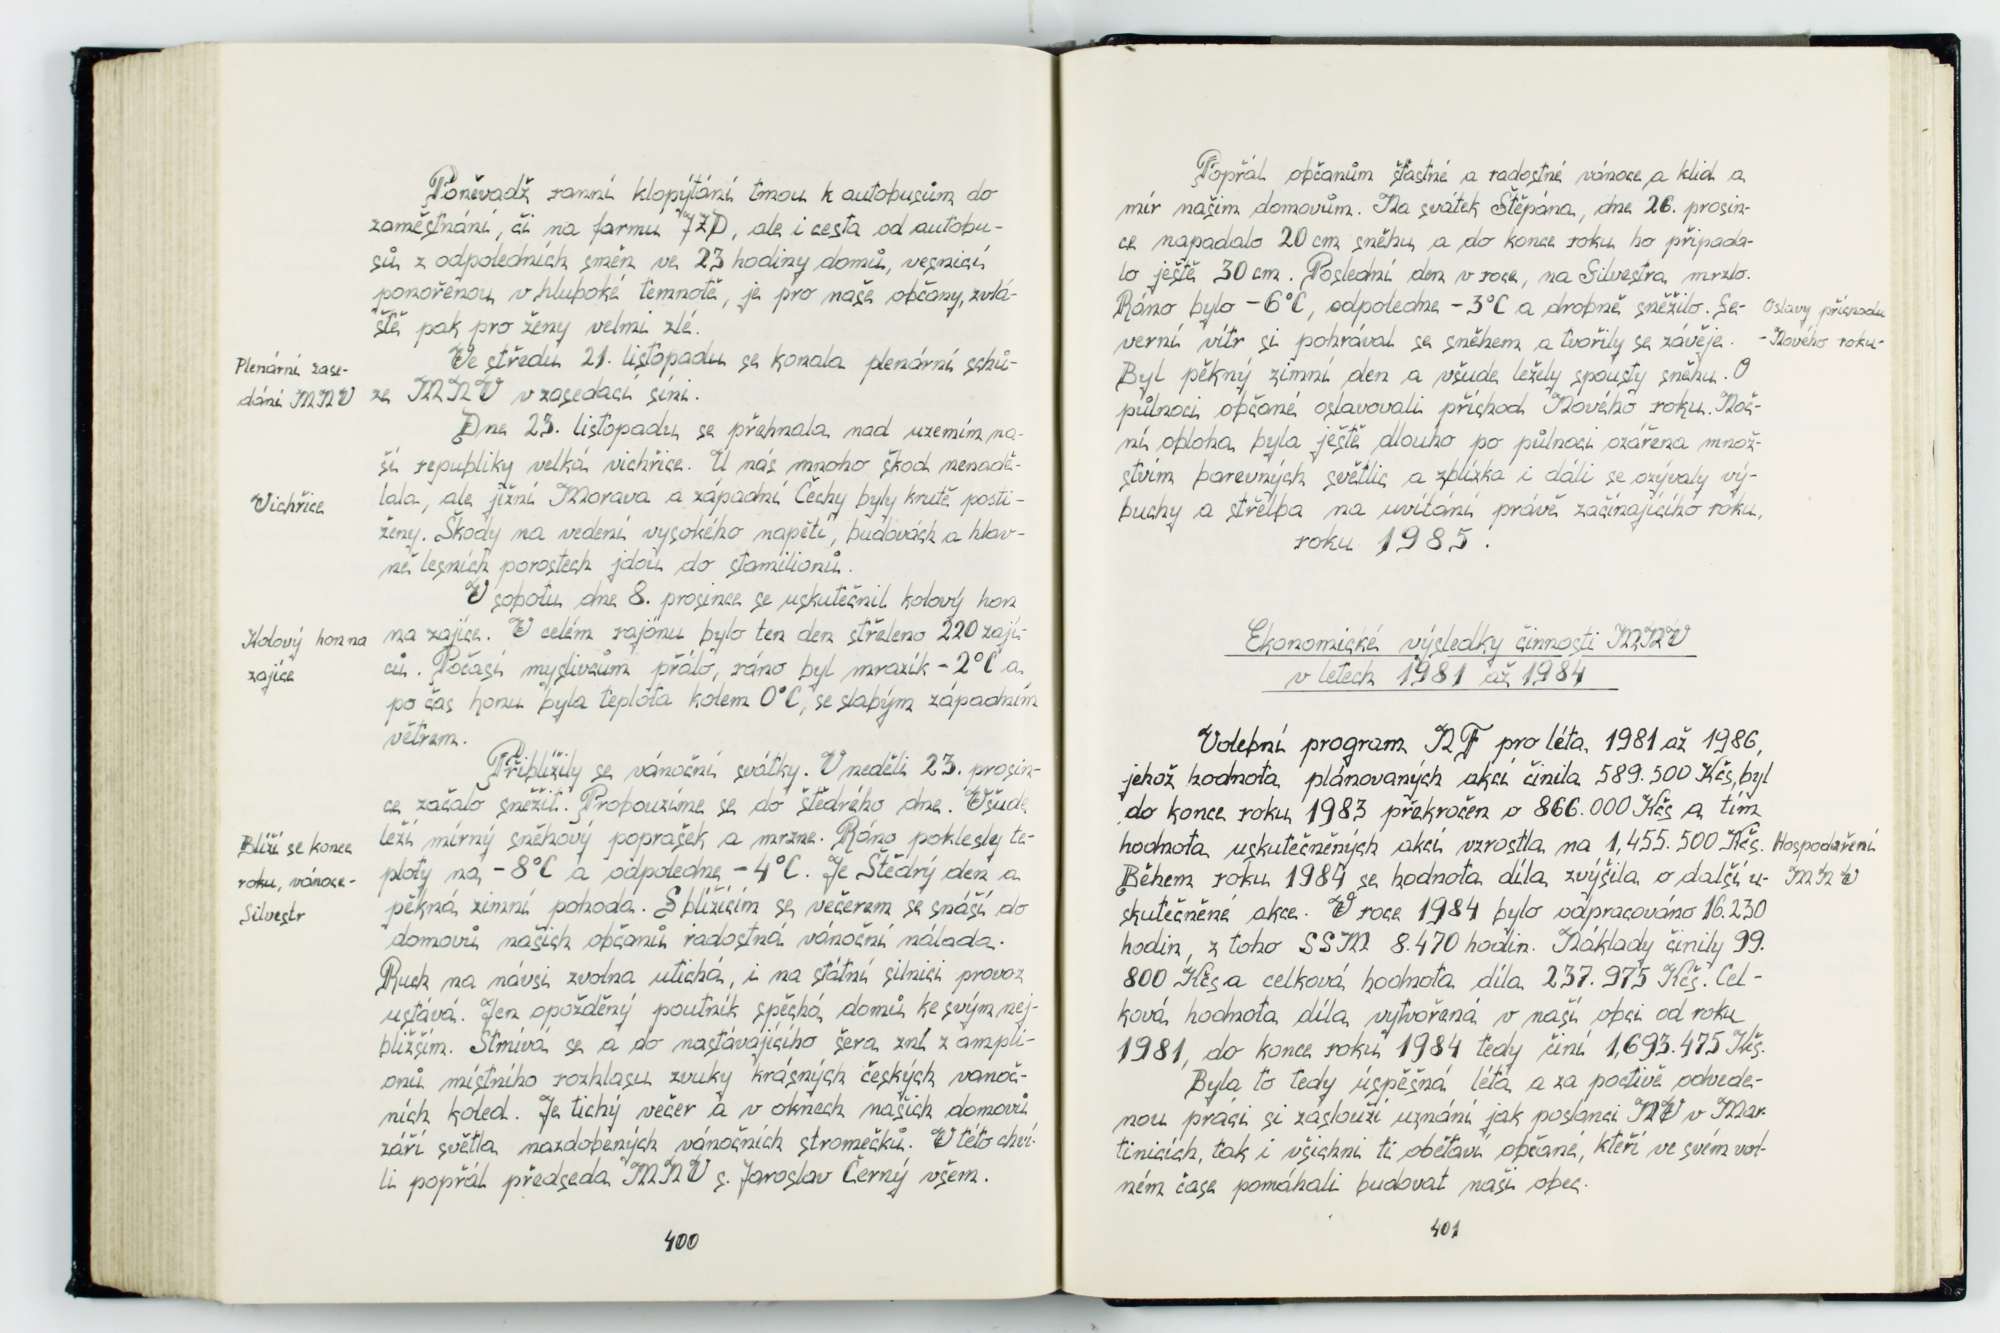 Poněvadž ranní klopýtání tmou k autobusům do
zaměstnání, či na farmu JZD, ale i cesta od autobu-
sů z odpoledních směn ve 23 hodiny domů, vesnicí
ponořenou v hluboké temnotě, je pro naše občany, zvlá-
ště pak pro ženy velmi zlé.
Plenární zase-
dání MNV
Ve středu 21. listopadu se konala plenární schů-
ze MNV v zasedací síni.
Dne 23. listopadu se přehnala nad uzemím na-
ší republiky velká vichřice. U nás mnoho škod nenadě-
Vichřice
lala, ale jižní Morava a západní Čechy byly krutě posti-
ženy. Škody na vedení vysokého napětí, budovách a hlav-
ně lesních porostech jdou do stamilionů.
V sobotu dne 8. prosince se uskutečnil kolový hon
Kolový hon na
zajíce
na zajíce. V celém rajónu bylo ten den střeleno 220 zají-
ců. Počasí myslivcům přálo, ráno byl mrazík -2°C a
po čas honu byla teplota kolem 0°C, se slabým západním
větrem.
Přiblížily se vánoční svátky. V neděli 23. prosin-
ce začalo sněžit. Probouzíme se do štědrého dne. Všude
leží mírný sněhový poprašek a mrzne. Ráno poklesly te-
Blíží se konec
roku, vánoce-
Silvestr
ploty na -8°C a odpoledne -4°C. Je Štědrý den a
pěkná zimní pohoda. S blížícím se večerem se snáší do
domovů našich občanů radostná vánoční nálada.
Ruch na návsi zvolna utichá, i na státní silnici provoz
ustává. Jen opožděný poutník spěchá domů ke svým nej-
bližším. Stmívá se a do nastávajícího šera zní z ampli-
onů místního rozhlasu zvuky krásných českých vanoč-
ních koled. Je tichý večer a v oknech našich domovů
září světla nazdobených vánočních stromečků. V této chví-
li popřál předseda MNV s. Jaroslav Černý všem.
400
Popřál občanům šťastné a radostné vánoce a klid a
mír našim domovům. Na svátek Štěpána, dne 26. prosin-
ce napadalo 20 cm sněhu a do konce roku ho připada-
lo ještě 30 cm. Poslední den v roce, na Silvestra mrzlo.
Ráno bylo -6°C, odpoledne -3°C a drobně sněžilo. Se-
verní vítr si pohrával se sněhem a tvořily se závěje.
Oslavy příchodu
-Nového roku-
Byl pěkný zimní den a všude ležely spousty sněhu. O
půlnoci občané oslavovali příchod Nového roku. Noč-
ní obloha byla ještě dlouho po půlnoci ozářena množ-
stvím barevných světlic a zblízka i dáli se ozývaly vý-
buchy a střelba na uvítání právě začínajícího roku,
roku 1985.
Ekonomické výsledky činnosti MNV
v letech 1981 až 1984
Volební program NF pro léta 1981 až 1986,
jehož hodnota plánovaných akcí činila 589.500 Kčs, byl
do konce roku 1983 překročen o 866.000 Kčs a tím
hodnota uskutečněných akcí vzrostla na 1,455.500 Kčs.
Hospodaření
MNV
Během roku 1984 se hodnota díla zvýšila o další u-
skutečněné akce. V roce 1984 bylo odpracováno 16.230
hodin, z toho SSM 8.470 hodin. Náklady činily 99.
800 Kčs a celková hodnota díla 237.975 Kčs. Cel-
ková hodnota díla vytvořená v naší obci od roku
1981, do konce roku 1984 tedy činí 1,693.475 Kčs.
Byla to tedy úspěšná léta a za poctivě odvede-
nou práci si zaslouží uznání jak poslanci NV v Mar-
tinicích, tak i všichni ti obětaví občané, kteří ve svém vol-
ném čase pomáhali budovat naši obec.
401